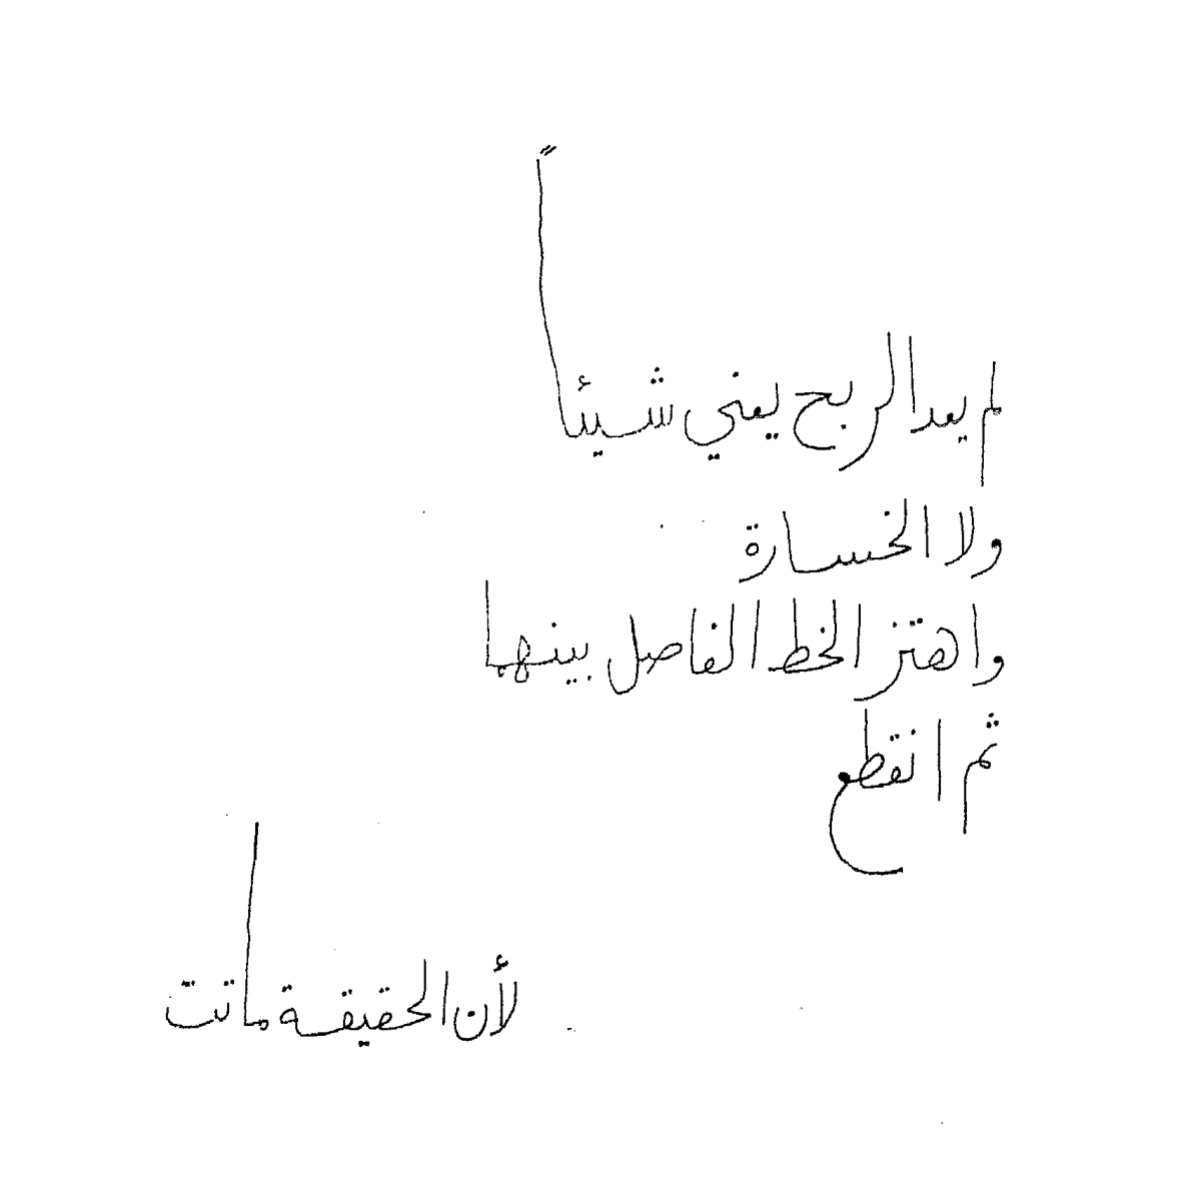 لم يعد الربح يعني شيئاً
ولا الخسارة
واهتز الخط الفاصل بينهما
ثم انقطع
لأن الحقيقة ماتت